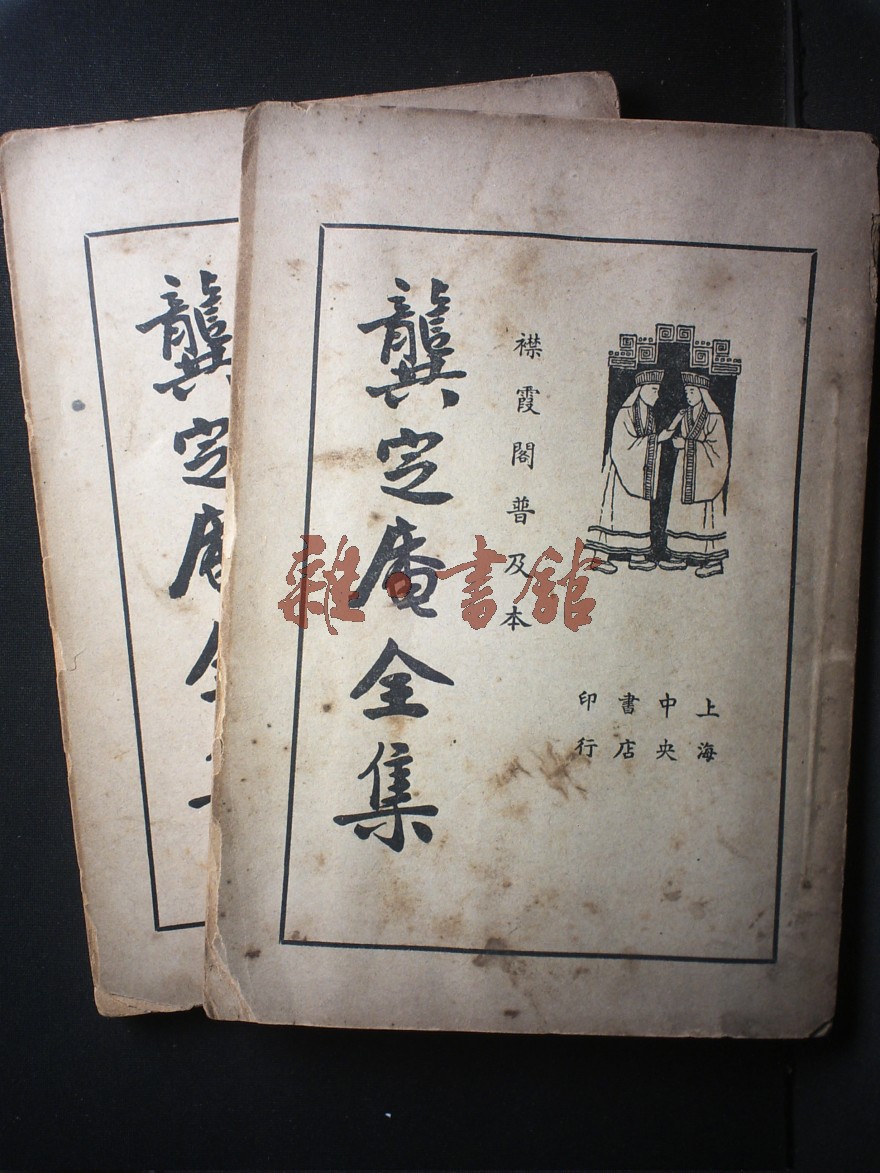 襟霞閣普及本
龔定庵全集
上海
中央
書店
印行
龔定庵全集
雜·書館